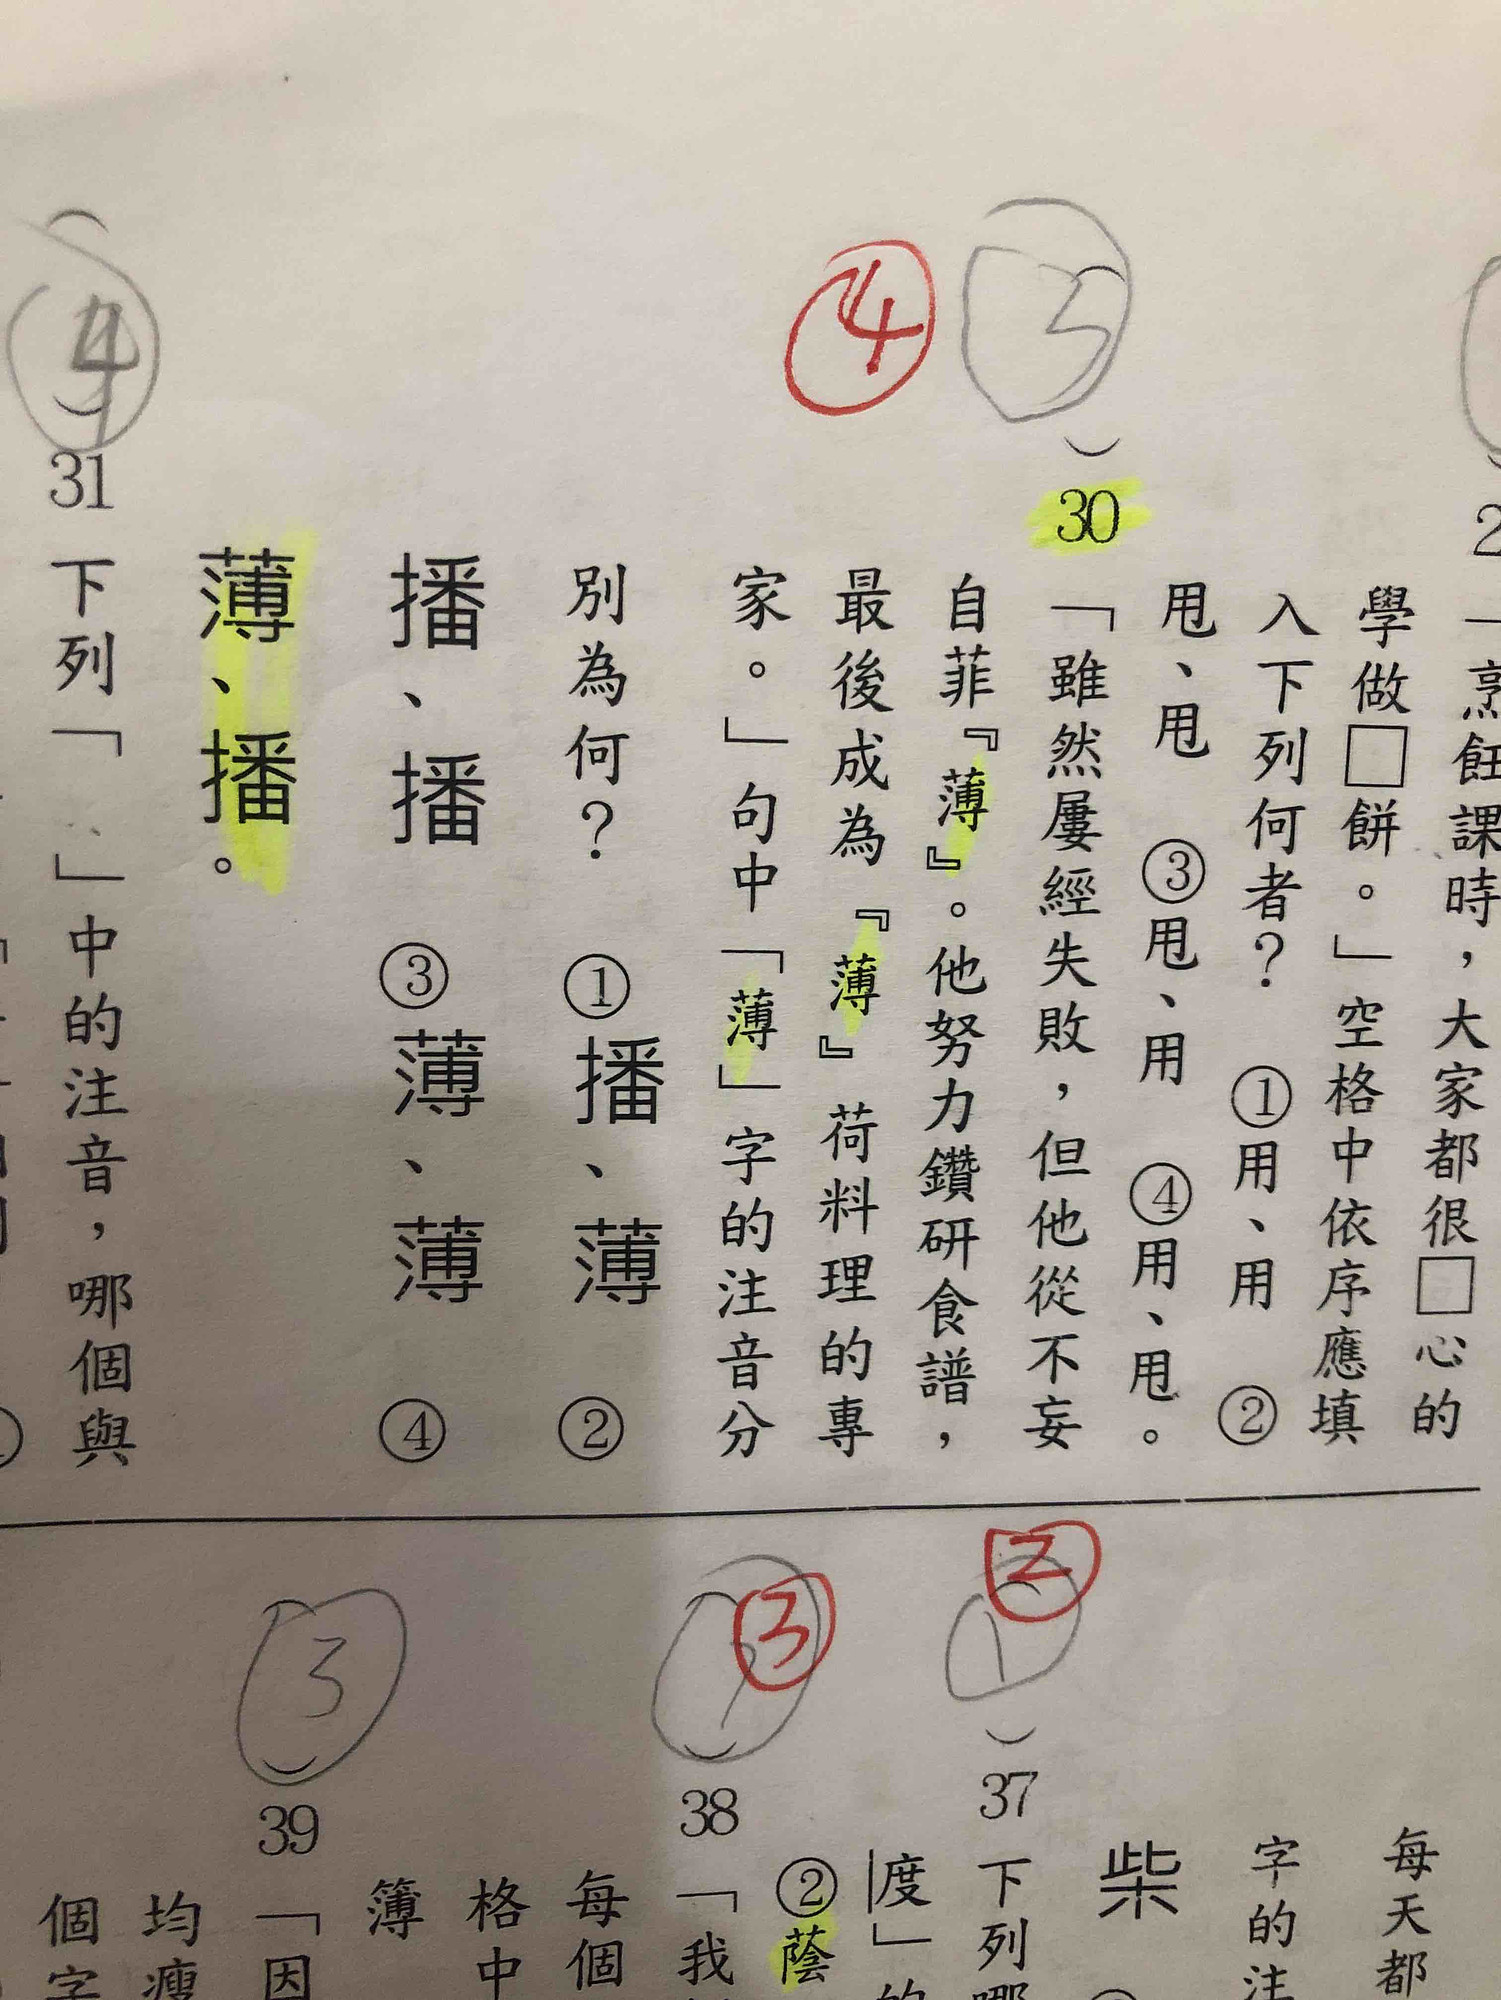 「烹飪課時，大家都很□心的
學做□餅。」空格中依序應填
入下列何者？ ①用、用 ②
甩、甩 ③甩、用 ④用、甩。
3
（ ）30「雖然屢經失敗，但他從不妄
4
自菲『薄』。他努力鑽研食譜，
最後成為『薄』荷料理的專
家。」句中「薄」字的注音分
別為何？ ①播、薄 ②
播、播 ③薄、薄 ④
薄、播。
4
（ ）31 下列「 」中的注音，哪個與
每天都
字的注
柴
2
1
）37 下列哪
度」的
②蔭
3
（ ）38「我
每個
格中
簿
3
（ ）39「因
均瘦
個字